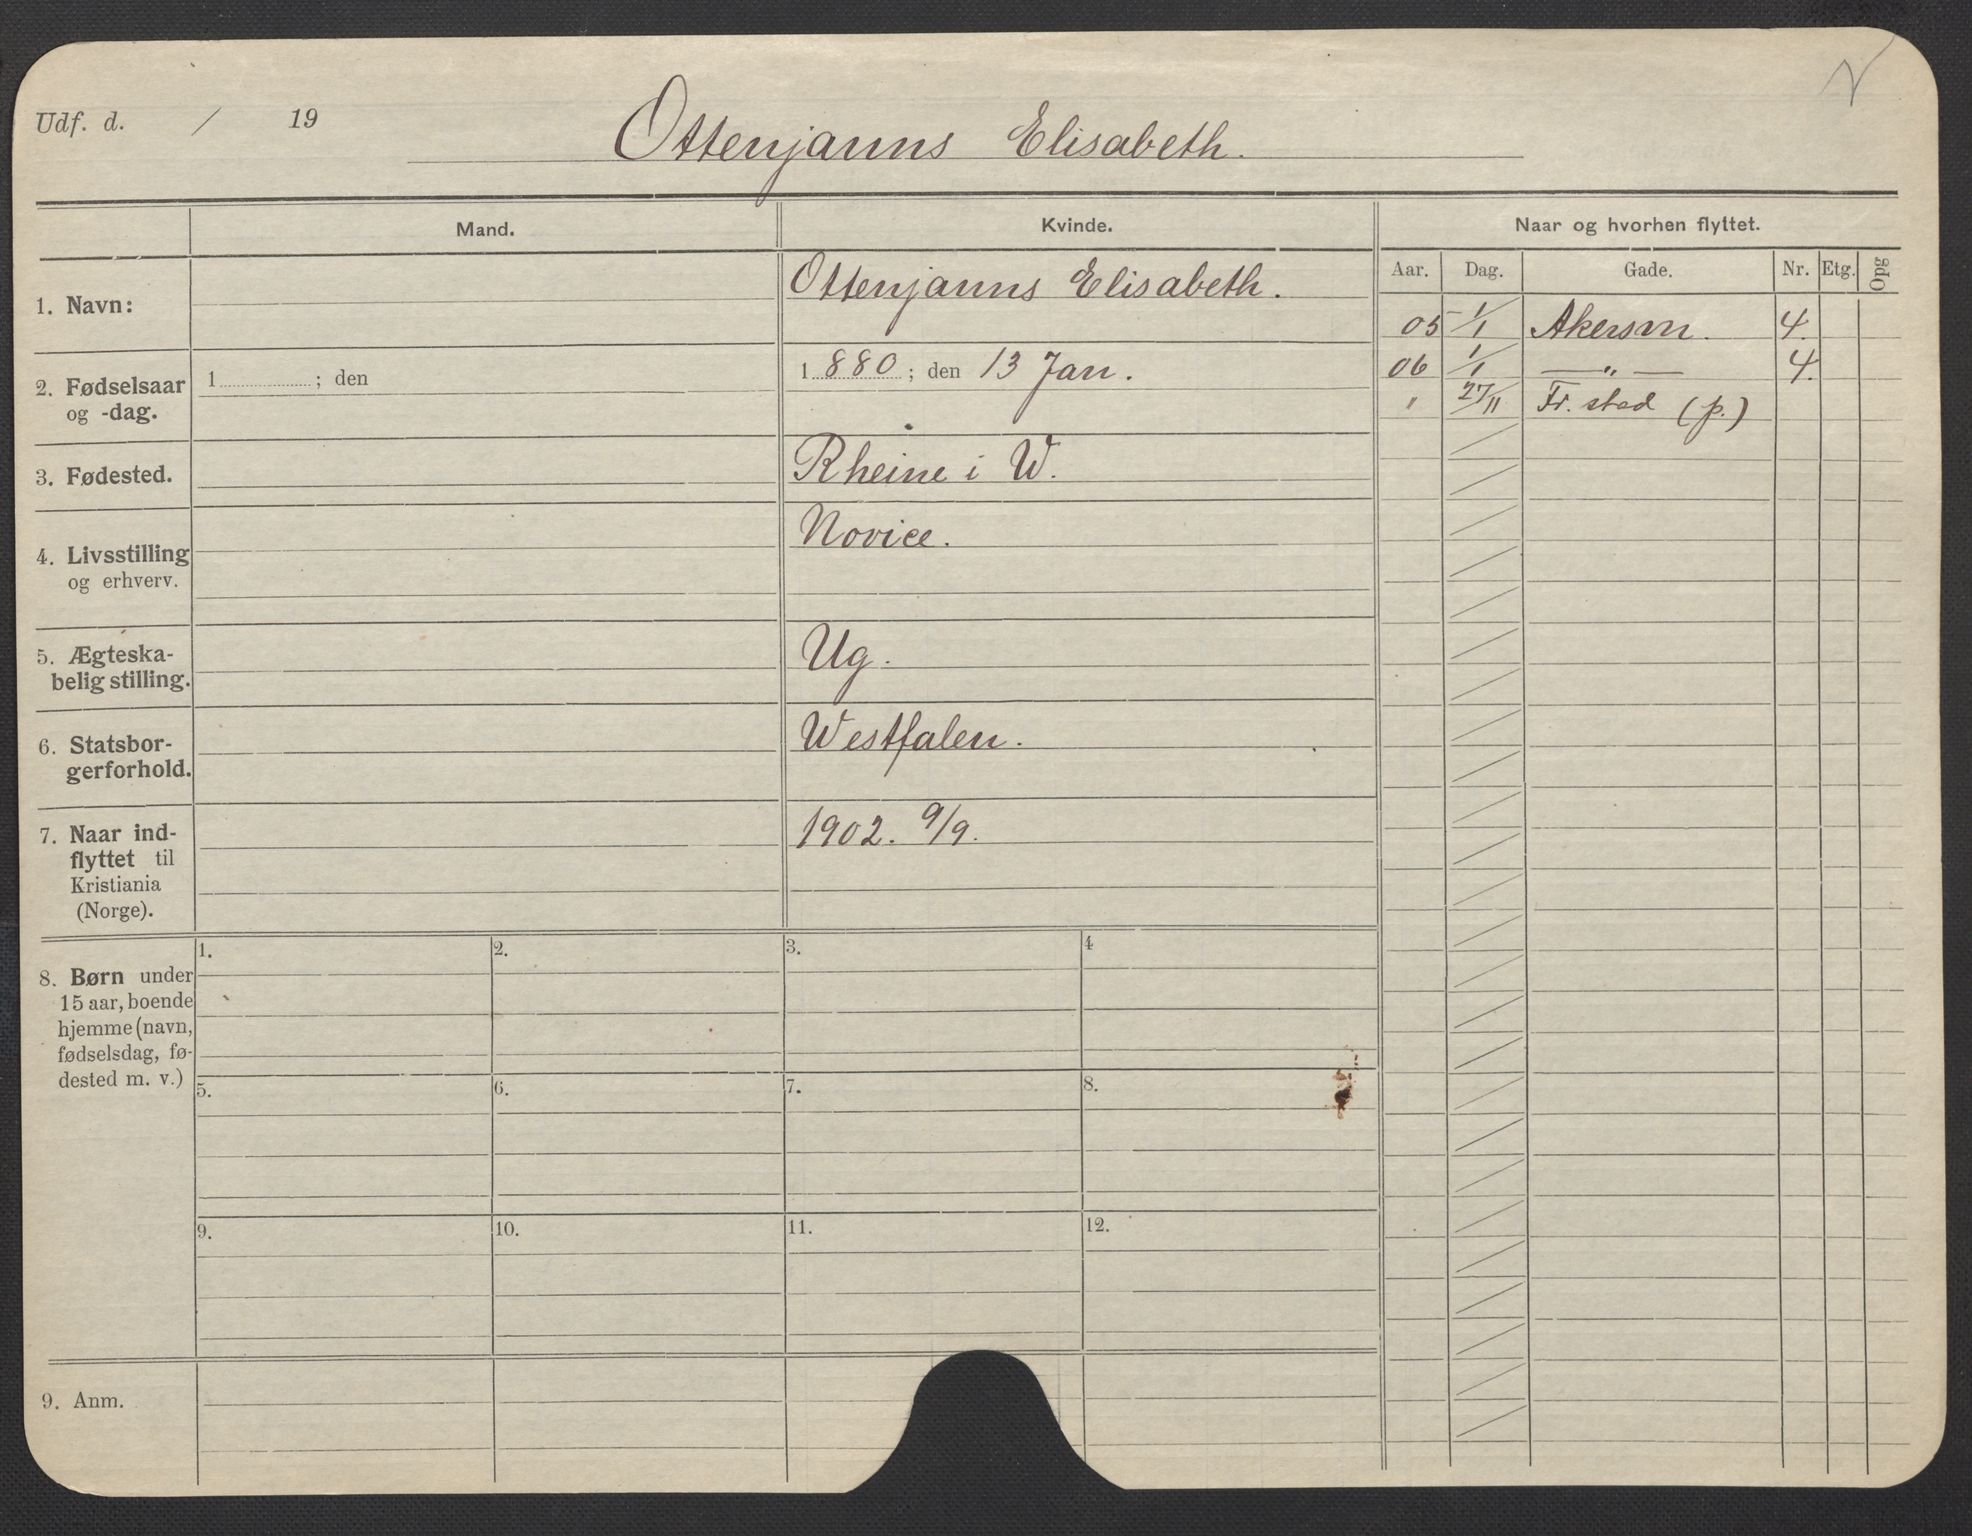 Udf. d. / 19
Ottenjanns Elisabeth.
Mand.
Kvinde.
Naar og hvorhen flyttet.
Aar. Dag. Gade. Nr. Etg. Opg
1. Navn:
Ottenjanns Elisabeth.
2. Fødselsaar
og -dag.
1 ; den
1 880 ; den 13 Jan.
3. Fødested.
Rheine i W.
4. Livsstilling
og erhverv.
Novice.
5. Ægteska-
belig stilling.
Ug.
6. Statsbor-
gerforhold.
Westfalen.
7. Naar ind-
flyttet til
Kristiania
(Norge).
1902. 9/9.
05 1/1 Akersvn. 4.
06 1/1 — „ — 4.
" 27/11 Fr. stad (p.)
8. Børn under
15 aar, boende
hjemme (navn,
fødselsdag, fø-
dested m. v.)
1. 2. 3. 4
5. 6. 7. 8.
9. 10. 11. 12.
9. Anm.